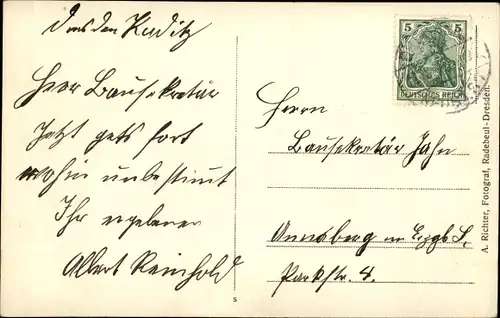 Dresden Kaditz
Herr Bausekretär
Jetzt gets fort
wohin unbestimt
Ihr ergebener
Albert Reinhold
5
DEUTSCHES REICH
Herrn
Bausekretär Jahn
Annaberg im Erzgb. S.
Parkstr. 4.
A. Richter, Fotograf, Radebeul-Dresden.
s